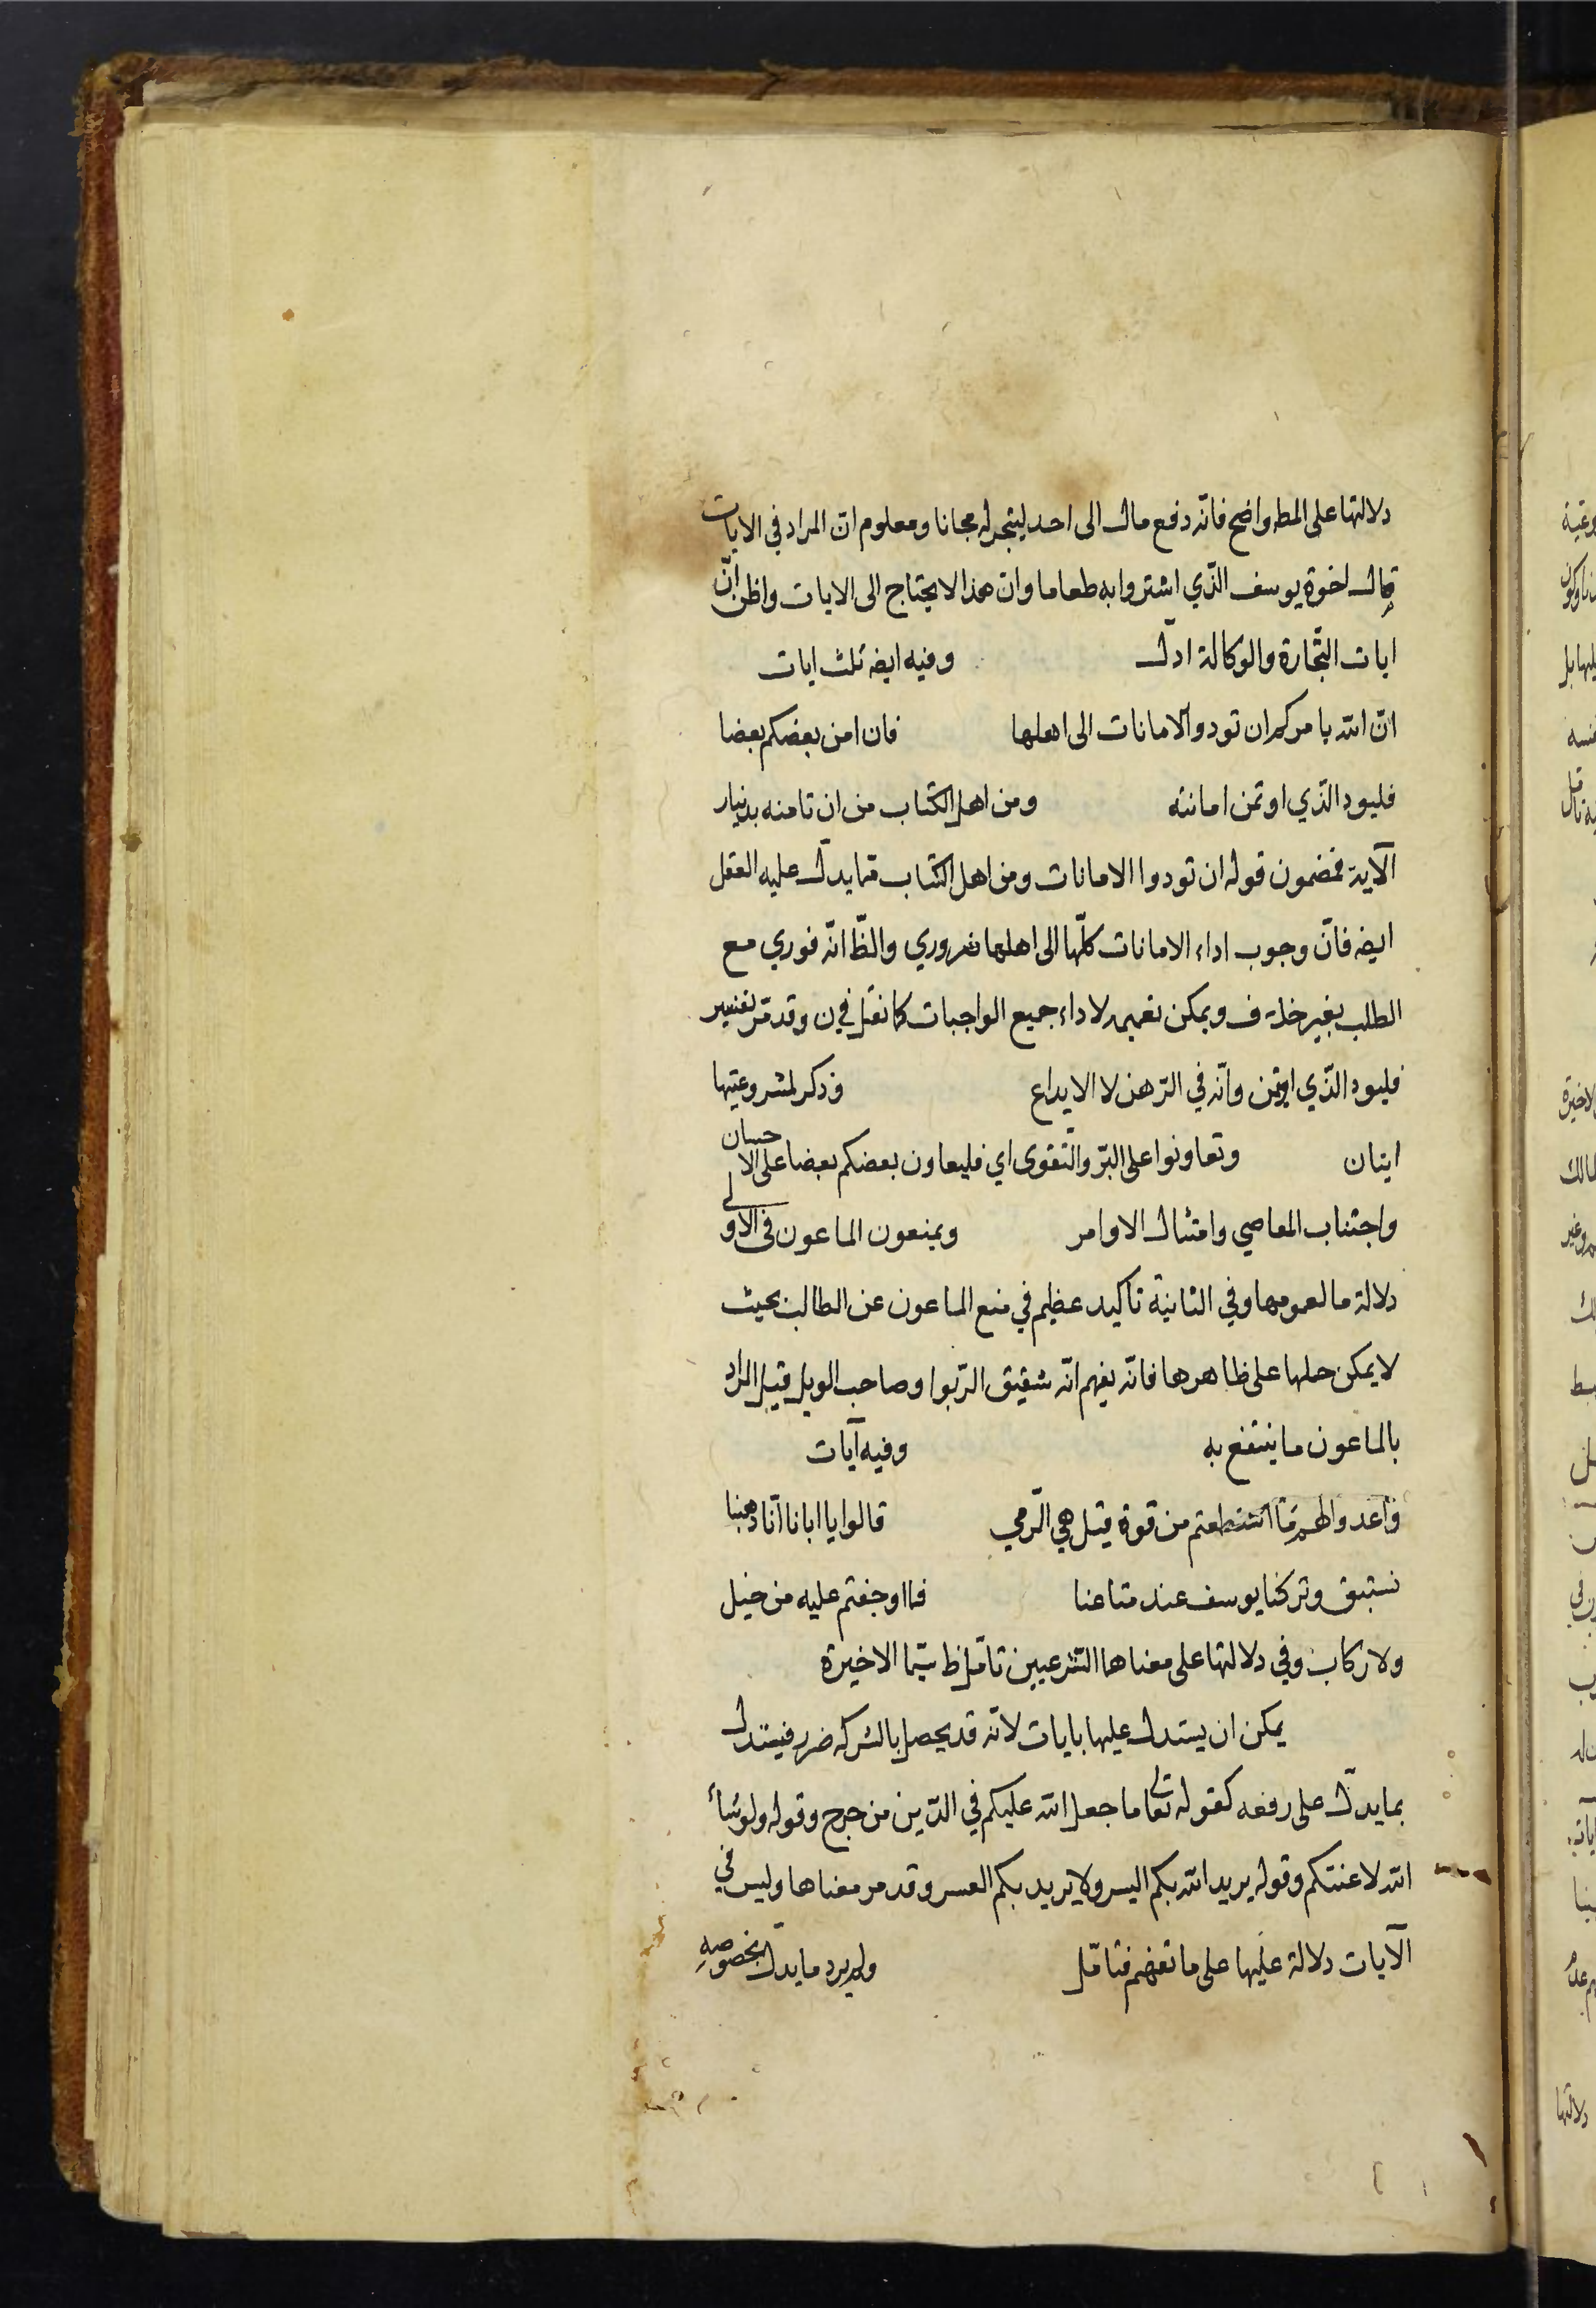 دلالتها على المط واضح فانه دفع مال الى احد ليتجر له مجانا ومعلوم ان المراد في الايات
مال اخوة يوسف الذي اشتروا به طعاما وان هذا لا يحتاج الى الايات واظن ان
ايات التجارة والوكالة ادل وفيه ايضه ثلث ايات
ان الله يامركم ان تودوا الامانات الى اهلها فان امن بعضكم بعضا
فليود الذي اوتمن امانته ومن اهل الكتاب من ان تامنه بدنيار
الآية فمضمون قوله ان تودوا الامانات ومن اهل الكتاب مما يدل عليه العقل
ايضه فان وجوب اداء الامانات كلها الى اهلها ضروري والظ انه فوري مع
الطلب بغير خلاف ويمكن تعميمه لاداء جميع الواجبات كما نقل في ن وقد مر تفسير
فليود الذي اوتمن وانه في الرهن لا الايداع وذكر لمشروعيتها
ايتان وتعاونوا على البر والتقوى اي فليعاون بعضكم بعضا على الاحسان
واجتناب المعاصي وامتثال الاوامر ويمنعون الماعون في الاولى
دلالة ما لعمومها وفي الثانية تاكيد عظيم في منع الماعون عن الطالب بحيث
لا يمكن حملها على ظاهرها فانه يفهم انه شقيق الربوا وصاحب الويل قيل المراد
بالماعون ما ينتفع به وفيه آيات
واعدوا لهم ما استطعتم من قوة قيل هي الرمي قالوا يا ابانا انا ذهبنا
نستبق وتركنا يوسف عند متاعنا فما اوجفتم عليه من خيل
ولا ركاب وفي دلالتها على معناها الشرعيين تامل ظ سيما الاخيرة
يمكن ان يستدل عليها بايات لانه قد يحصل بالشركه ضرر فيستدل
بما يدل على رفعه كقوله تعالى ما جعل الله عليكم في الدين من حرج وقوله ولو شاء
الله لاعنتكم وقوله يريد الله بكم اليسر ولا يريد بكم العسر وقد مر معناها وليس في
الآيات دلالة عليها على ما تفهم فتامل ولم يرد ما يدل بخصوصه